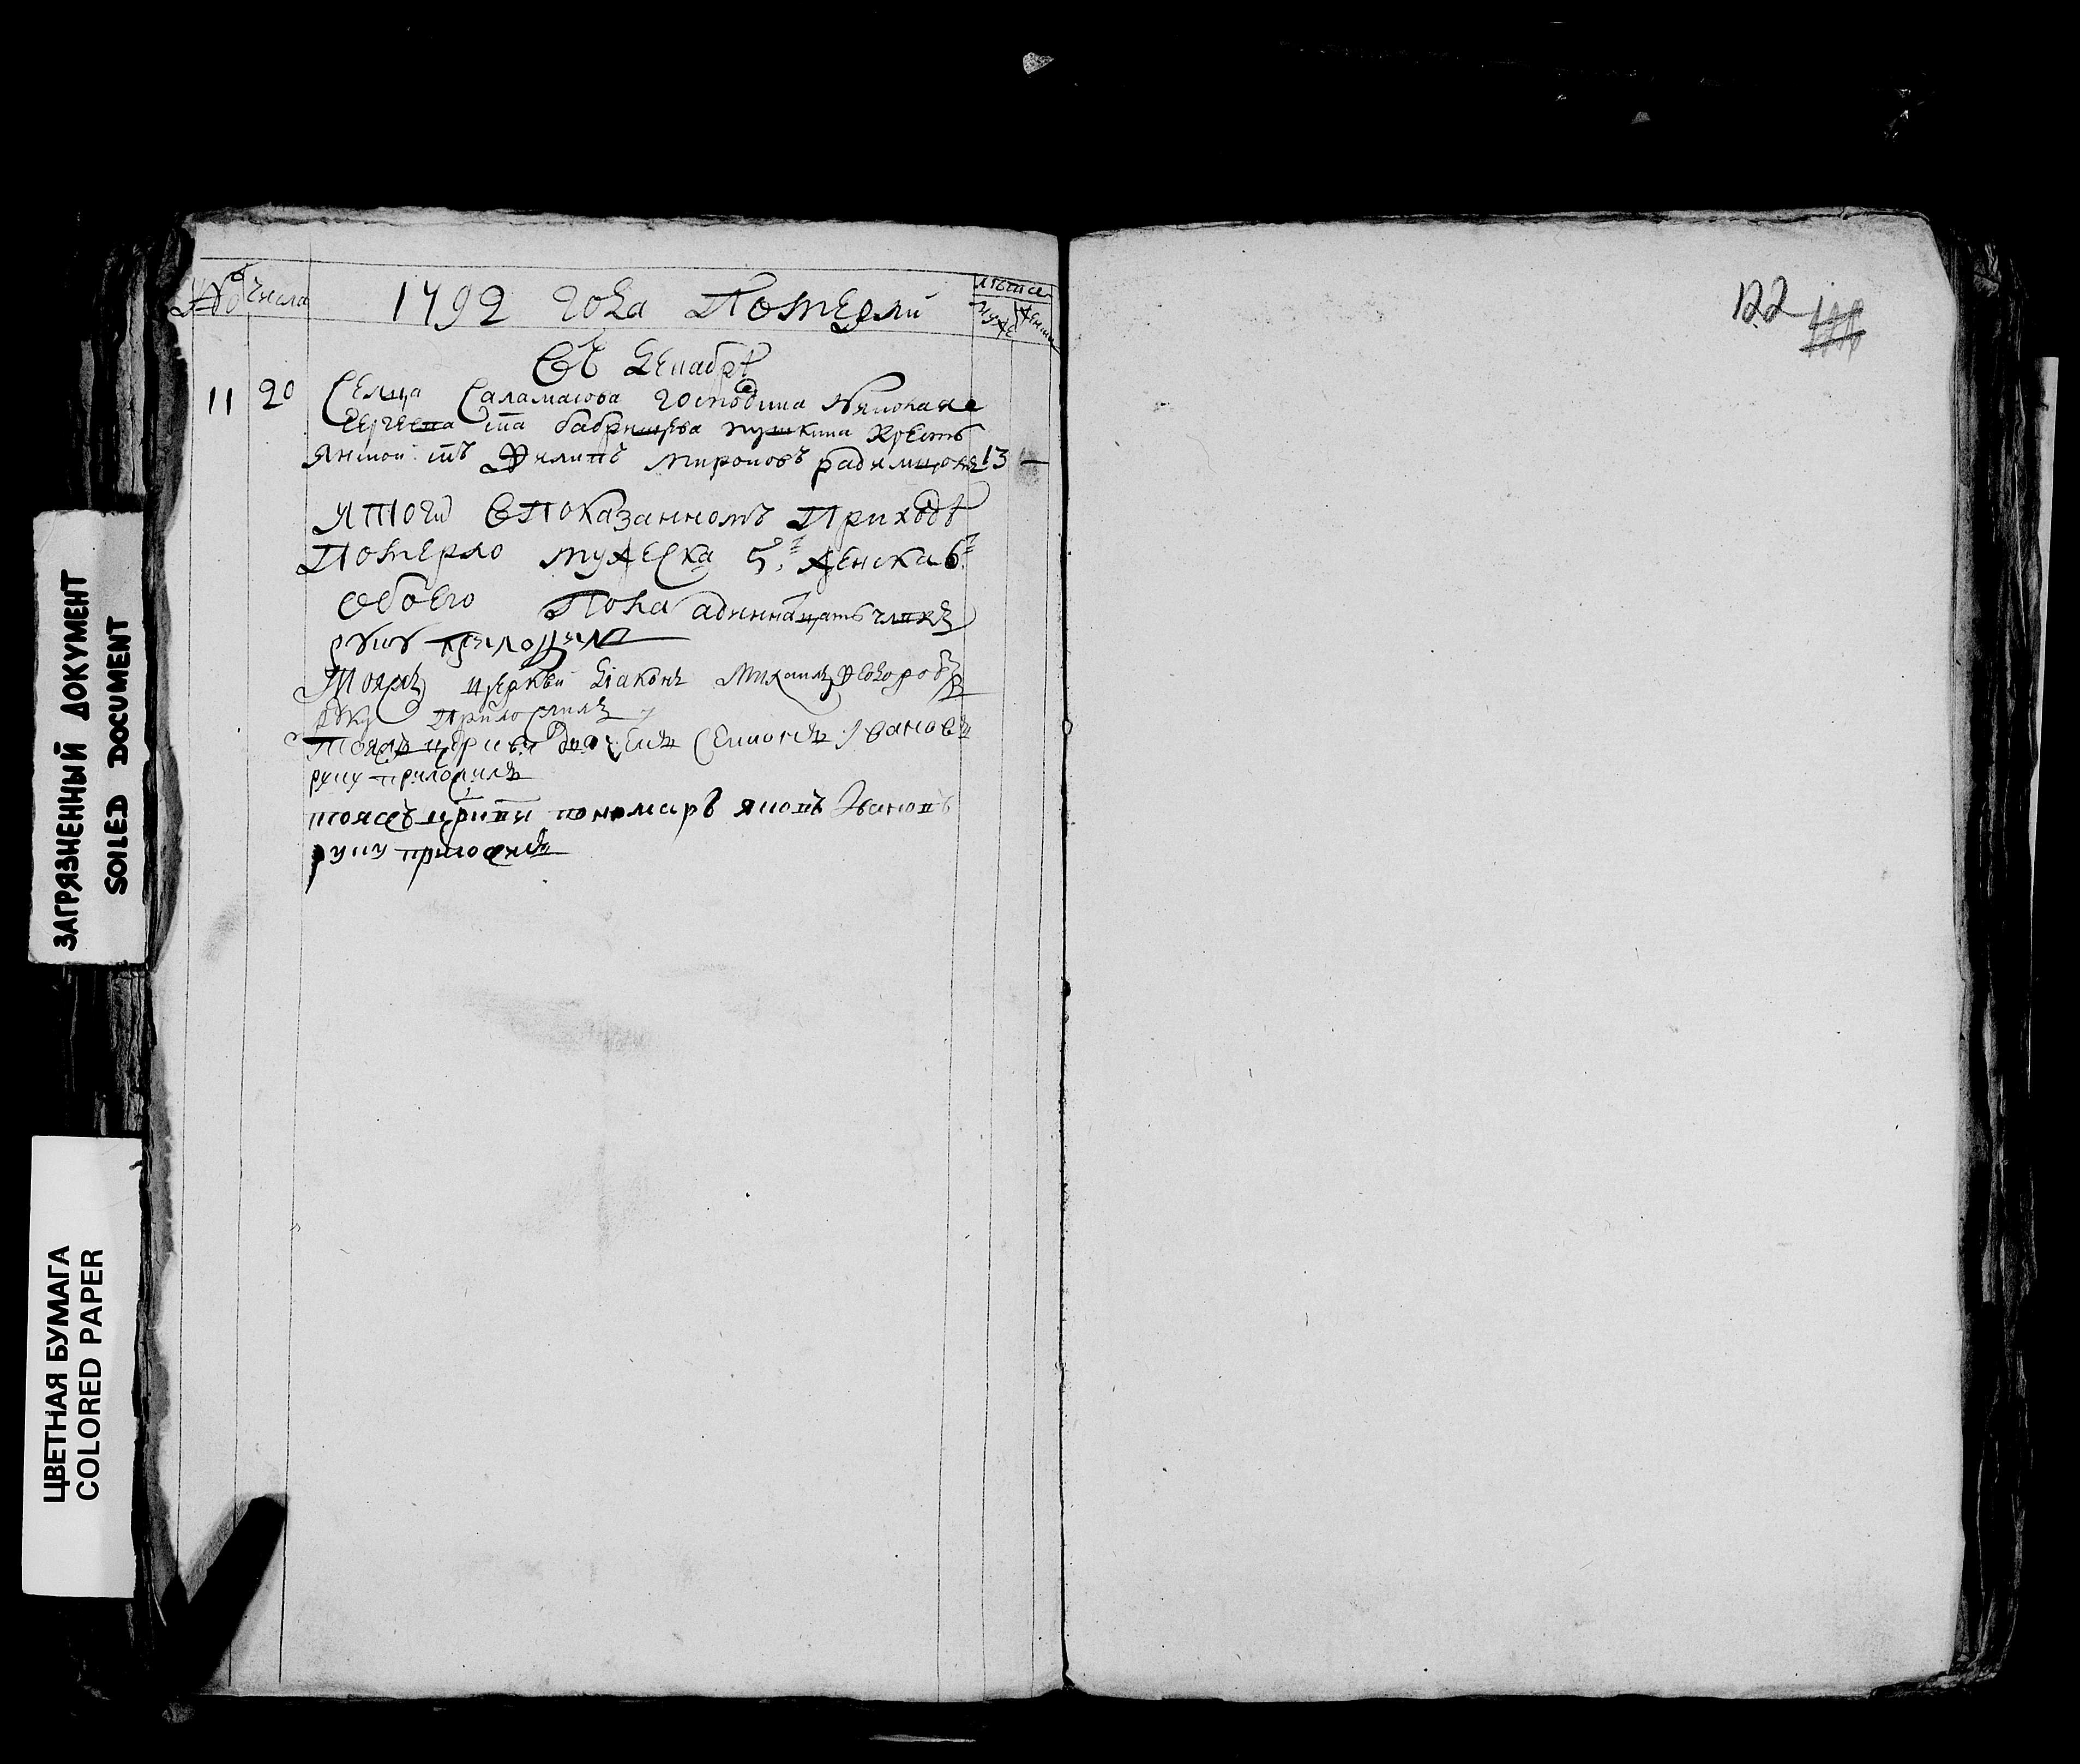 № числа 1792 года Померли лѣта
муже женска
Въ Декабрѣ
11 20 Селца Саламасова господина Николая
Сергеева сна бабрищева пушкина крестъ
янской снъ Филипъ Мироновъ 13 —
Итого в показанномъ Приходѣ
Померло мужеска 5, женска 6
обоего Пола адиннацать члвкъ
Тояжъ церкви Діаконъ Михаилъ Федоровъ
руку Приложилъ
Тояжъ церкви дьячекъ Симионъ Ивановъ
руку приложилъ
тояжъ цркви пономарь яковъ Ивановъ
руку приложилъ
122
ЗАГРЯЗНЕННЫЙ ДОКУМЕНТ
SOILED DOCUMENT
ЦВЕТНАЯ БУМАГА
COLORED PAPER